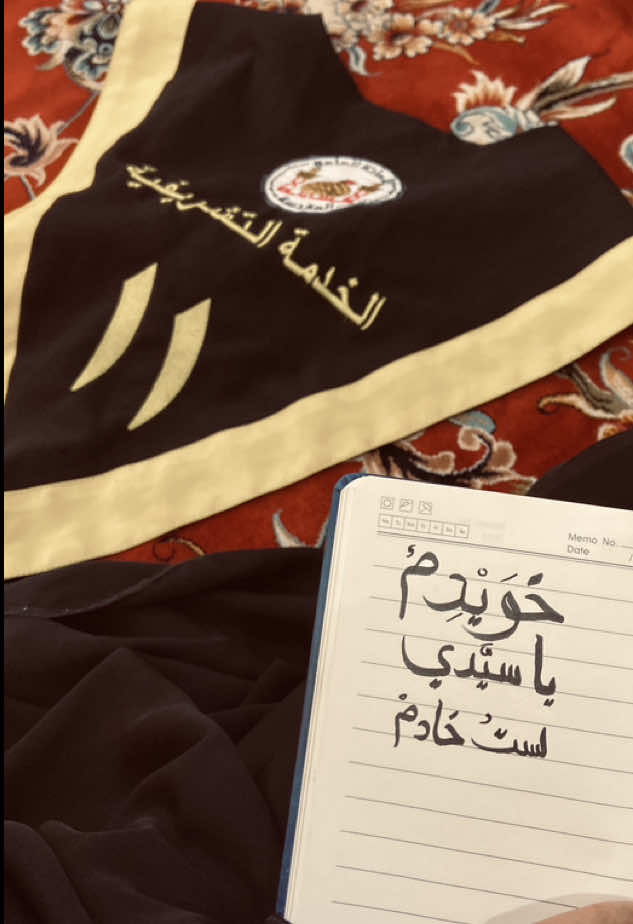 الخدمة التشريفية
١١
Memo No.
Date
خُوَيْدِمٌ
يا سيّدي
لستُ خَادمْ